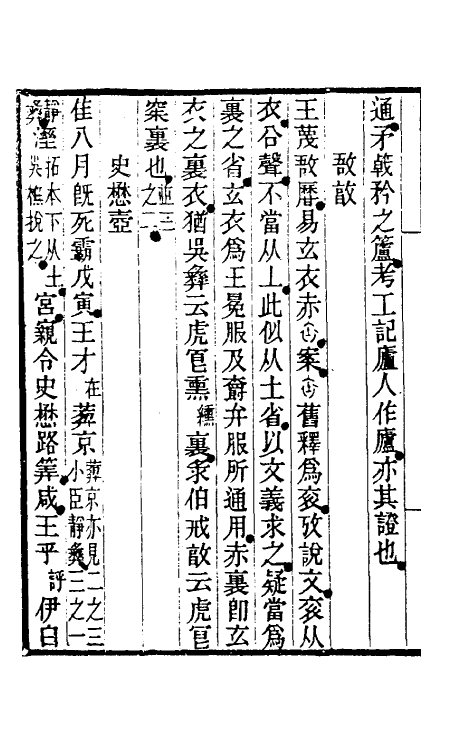 通矛㦸矜之籚考工記廬人作廬亦其證也
敔㪤
王蔑敔曆易玄衣赤㐭案㐭舊釋爲衮攷說文衮从
衣㕣聲不當从丄此似从土省以文義求之疑當爲
裏之省玄衣爲王冕服及齋弁服所通用赤裏卽玄
衣之裏衣猶吳彝云虎㡀熏纁裏彔伯戒㪤云虎㡀
寀裏也並三之二
史懋壺
隹八月旣死霸戊寅王才在葊京葊京亦見二之三小臣靜彝三之一
靜彝溼拓本下从土吳橅挩之宮窺令史懋路筭咸王乎評伊白